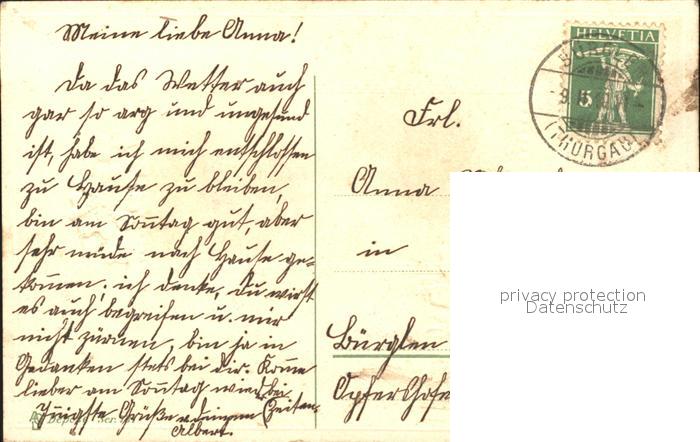 Meine liebe Anna!
Da das Wetter auch
gar so arg und ungesund
ist, habe ich mich entschlossen
zu Hause zu bleiben,
bin am Sonntag gut, aber
sehr müde nach Hause ge-
kommen; ich denke, du wirst
es auch begreifen u. mir
nicht zürnen, bin ja in
Gedanken stets bei dir. Komme
lieber am Sonntag wieder bei
Innigste Grüße v. deinem
Albert.
Frl.
Anna
in
Bürglen
HELVETIA
5
(THURGAU)
privacy protection
Datenschutz